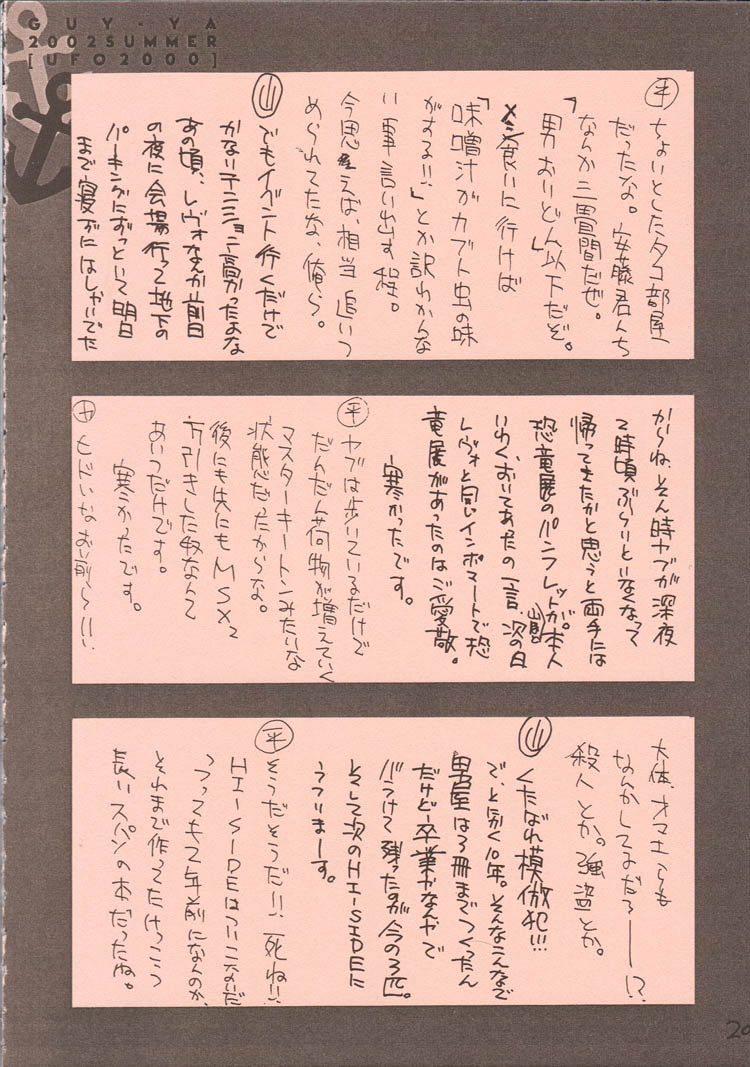 GUY-YA
2002SUMMER
[UFO2000]
平 ちょいとしたタコ部屋
だったな。安藤君んち
なんか三畳間だぜ。
「男おいどん以下だぞ。」
メシ食いに行けば
「味噌汁がカブト虫の味
がする!!」とか訳わかんな
い事言い出す程。
今思えば、相当追いつ
められてたな、俺ら。
山 でもイベント行くだけで
かないテンション高かったよな
あの頃、レヴォなんか前日
の夜に会場行って地下の
パーキングにずっといて明日
まで寝ずにはしゃいでた
からね、そん時ヤブが深夜
2時頃ぶらりといなくなって
帰ってきたかと思うと両手には
恐竜展のパンフレットが。本人
いわく、おいてあたの一言。次の日
レヴォと同じインポマートで恐
竜展があったのはご愛敬。
寒かったです。
平 ヤブは歩いているだけで
だんだん荷物が増えていく
マスターキートンみたいな
状態だったからな。
後にも先にもMSX2
万引きした奴なんて
あいつだけです。
寒かったです。
ヤ ヒドいなお前ら!!!
大体、オマエらも
なんかしてるだろーー!?
殺人とか。強盗とか。
山 くたばれ模倣犯!!!
で、と、別く10年。そんなこんなで
男屋は3冊までつくったん
だけど卒業やなんやで
バラけて残ったのが今の3匹。
そして次のHI-SIDEに
うつりまーす。
平 そうだそうだ!!死ね!!
HI-SIDEはついこないだ
つってもて年前になんのか、
それまで作ってたけっこう
長いスパンの本だったね。